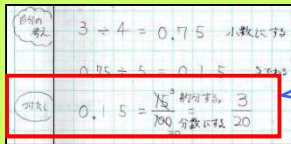 自分の考え
3 ÷ 4 = 0.75 小数にする
0.75 ÷ 5 = 0.15
つけたし
0.15 = 15/100 = 3/20
3 約分する。
20 分数にする